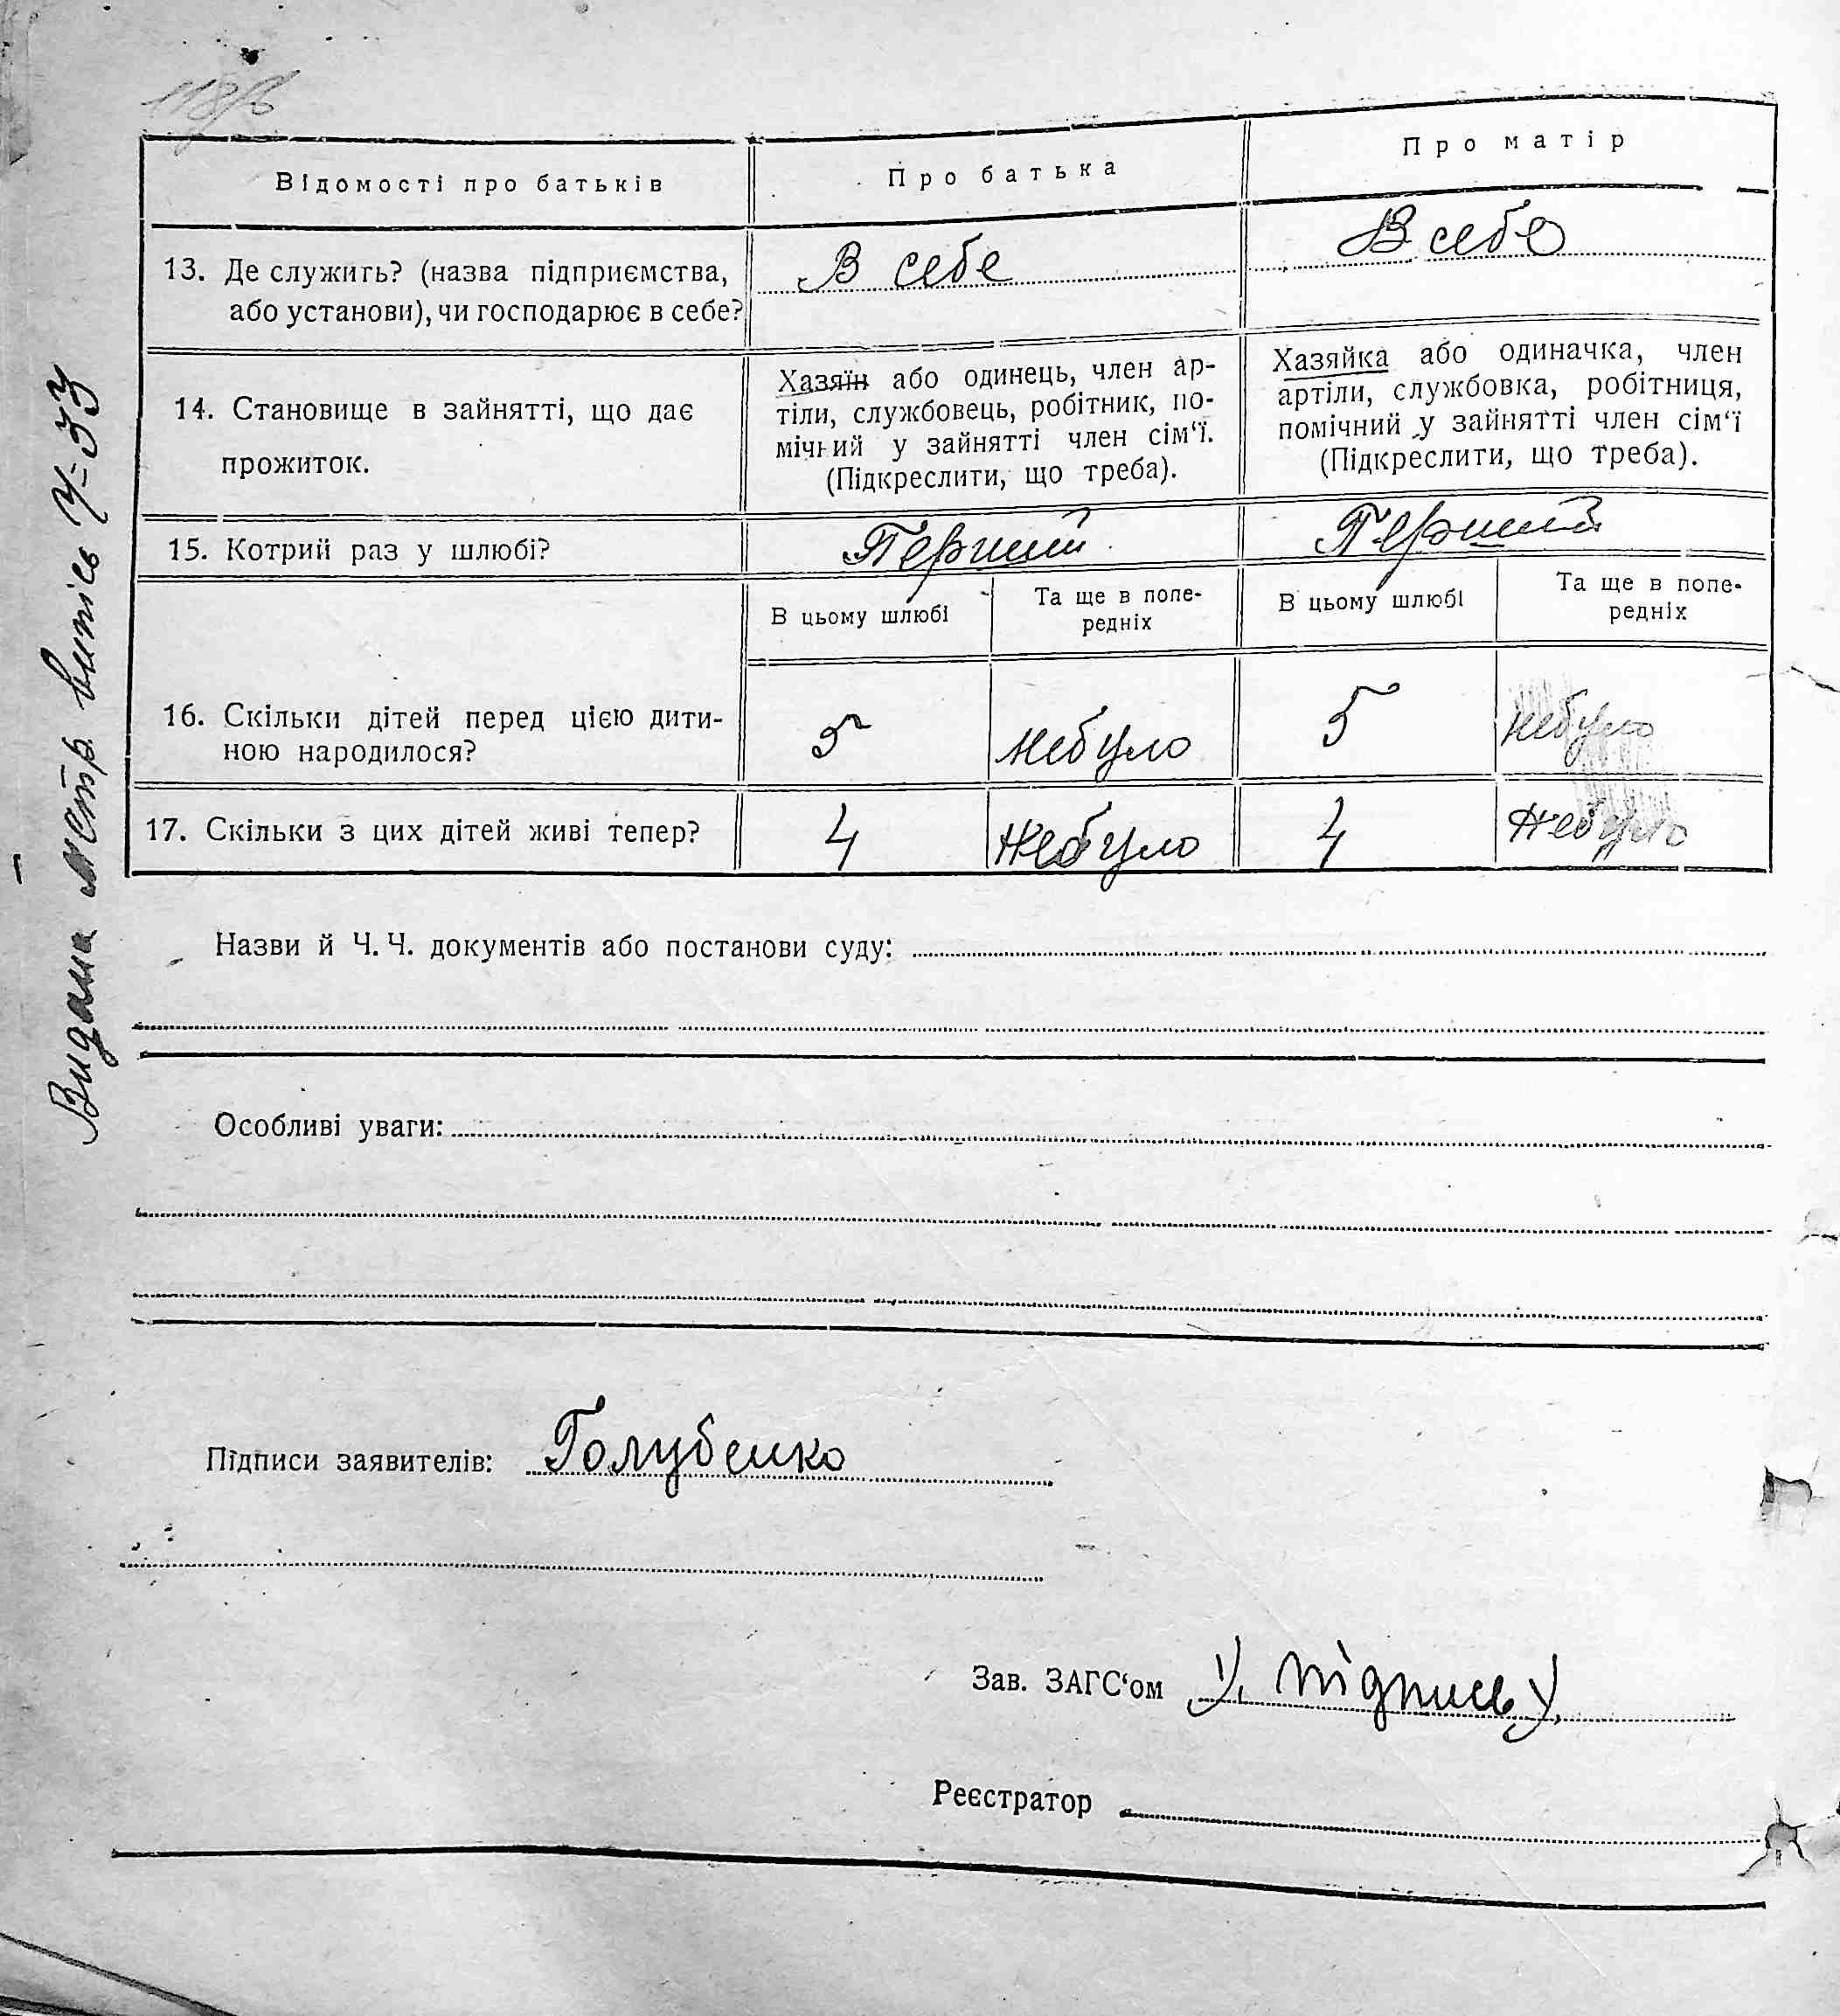 118/б
Відомості про батьків
Про батька
Про матір
13. Де служить? (назва підприємства,
або установи), чи господарює в себе?
В себе
В себе
14. Становище в зайнятті, що дає
прожиток.
Хазяїн або одинець, член ар-
тіли, службовець, робітник, по-
мічний у зайнятті член сім'ї.
(Підкреслити, що треба).
Хазяйка або одиначка, член
артіли, службовка, робітниця,
помічний у зайнятті член сім'ї
(Підкреслити, що треба).
15. Котрий раз у шлюбі?
Перший
Перший
В цьому шлюбі
Та ще в попе-
редніх
В цьому шлюбі
Та ще в попе-
редніх
16. Скільки дітей перед цією дити-
ною народилося?
5
небуло
5
небуло
17. Скільки з цих дітей живі тепер?
4
небуло
4
небуло
Назви й Ч. Ч. документів або постанови суду:
Особливі уваги:
Підписи заявителів: Голубенко
Зав. ЗАГС'ом підпись
Реєстратор
Видана метр. випись